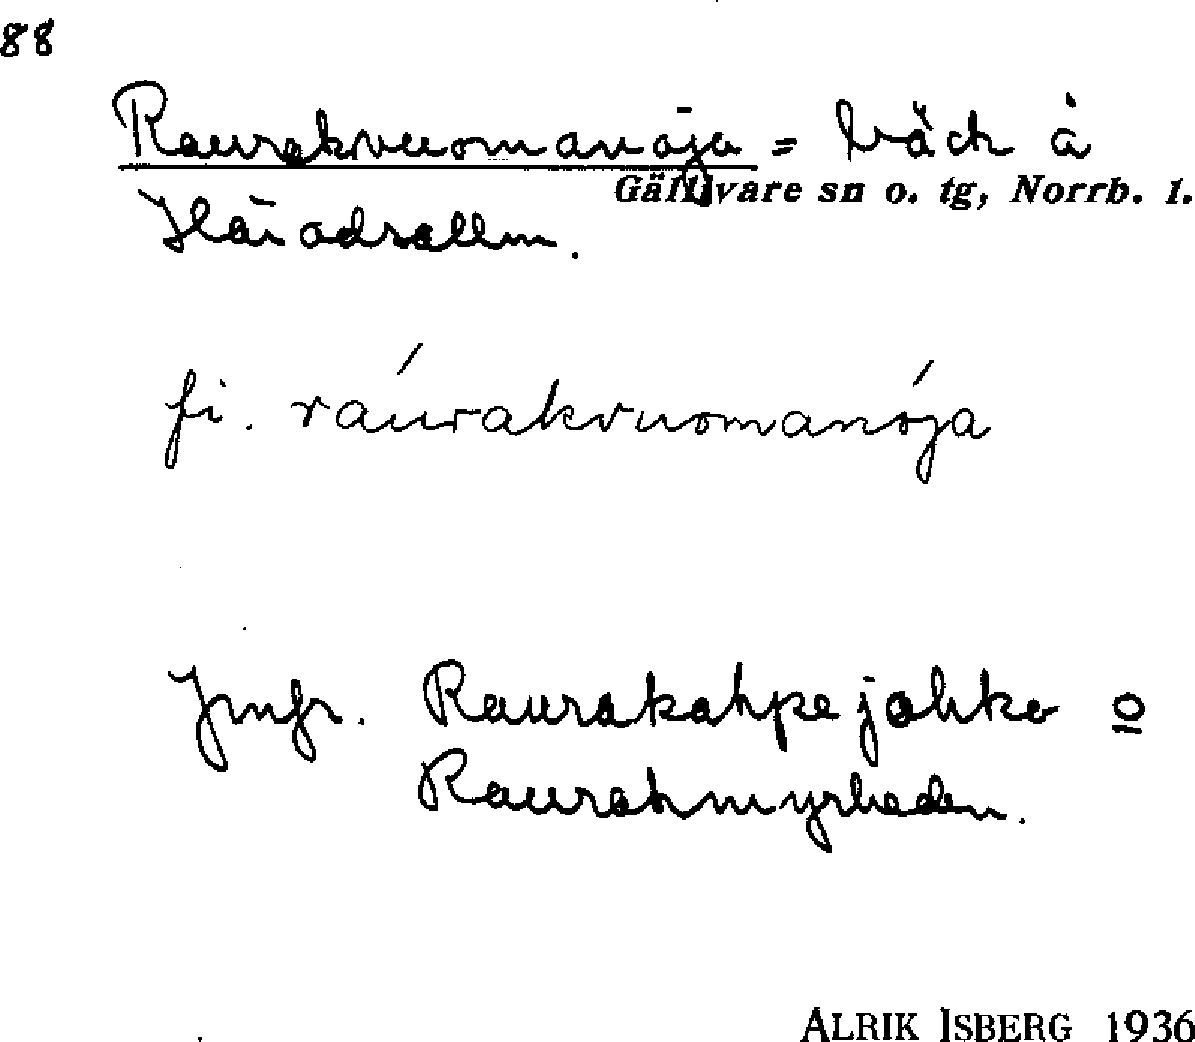 88
Raurakvuomanoja = bäck å
Gällivare sn o. tg, Norrb. l.
Häradsallm.
fi. ráurakvuomanója
Jmfr. Raurakahpejohko o
Raurakmyrheden.
ALRIK ISBERG 1936